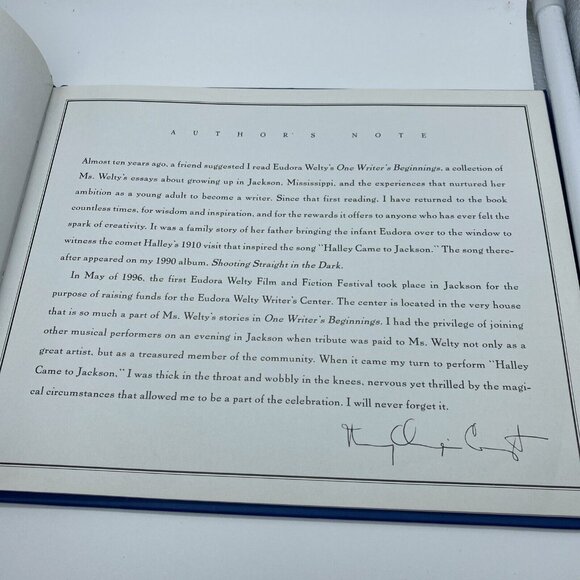 AUTHOR'S NOTE
Almost ten years ago, a friend suggested I read Eudora Welty's One Writer's Beginnings, a collection of
Ms. Welty's essays about growing up in Jackson, Mississippi, and the experiences that nurtured her
ambition as a young adult to become a writer. Since that first reading, I have returned to the book
countless times, for wisdom and inspiration, and for the rewards it offers to anyone who has ever felt the
spark of creativity. It was a family story of her father bringing the infant Eudora over to the window to
witness the comet Halley's 1910 visit that inspired the song "Halley Came to Jackson." The song there-
after appeared on my 1990 album, Shooting Straight in the Dark.
In May of 1996, the first Eudora Welty Film and Fiction Festival took place in Jackson for the
purpose of raising funds for the Eudora Welty Writer's Center. The center is located in the very house
that is so much a part of Ms. Welty's stories in One Writer's Beginnings. I had the privilege of joining
other musical performers on an evening in Jackson when tribute was paid to Ms. Welty not only as a
great artist, but as a treasured member of the community. When it came my turn to perform "Halley
Came to Jackson," I was thick in the throat and wobbly in the knees, nervous yet thrilled by the magi-
cal circumstances that allowed me to be a part of the celebration. I will never forget it.